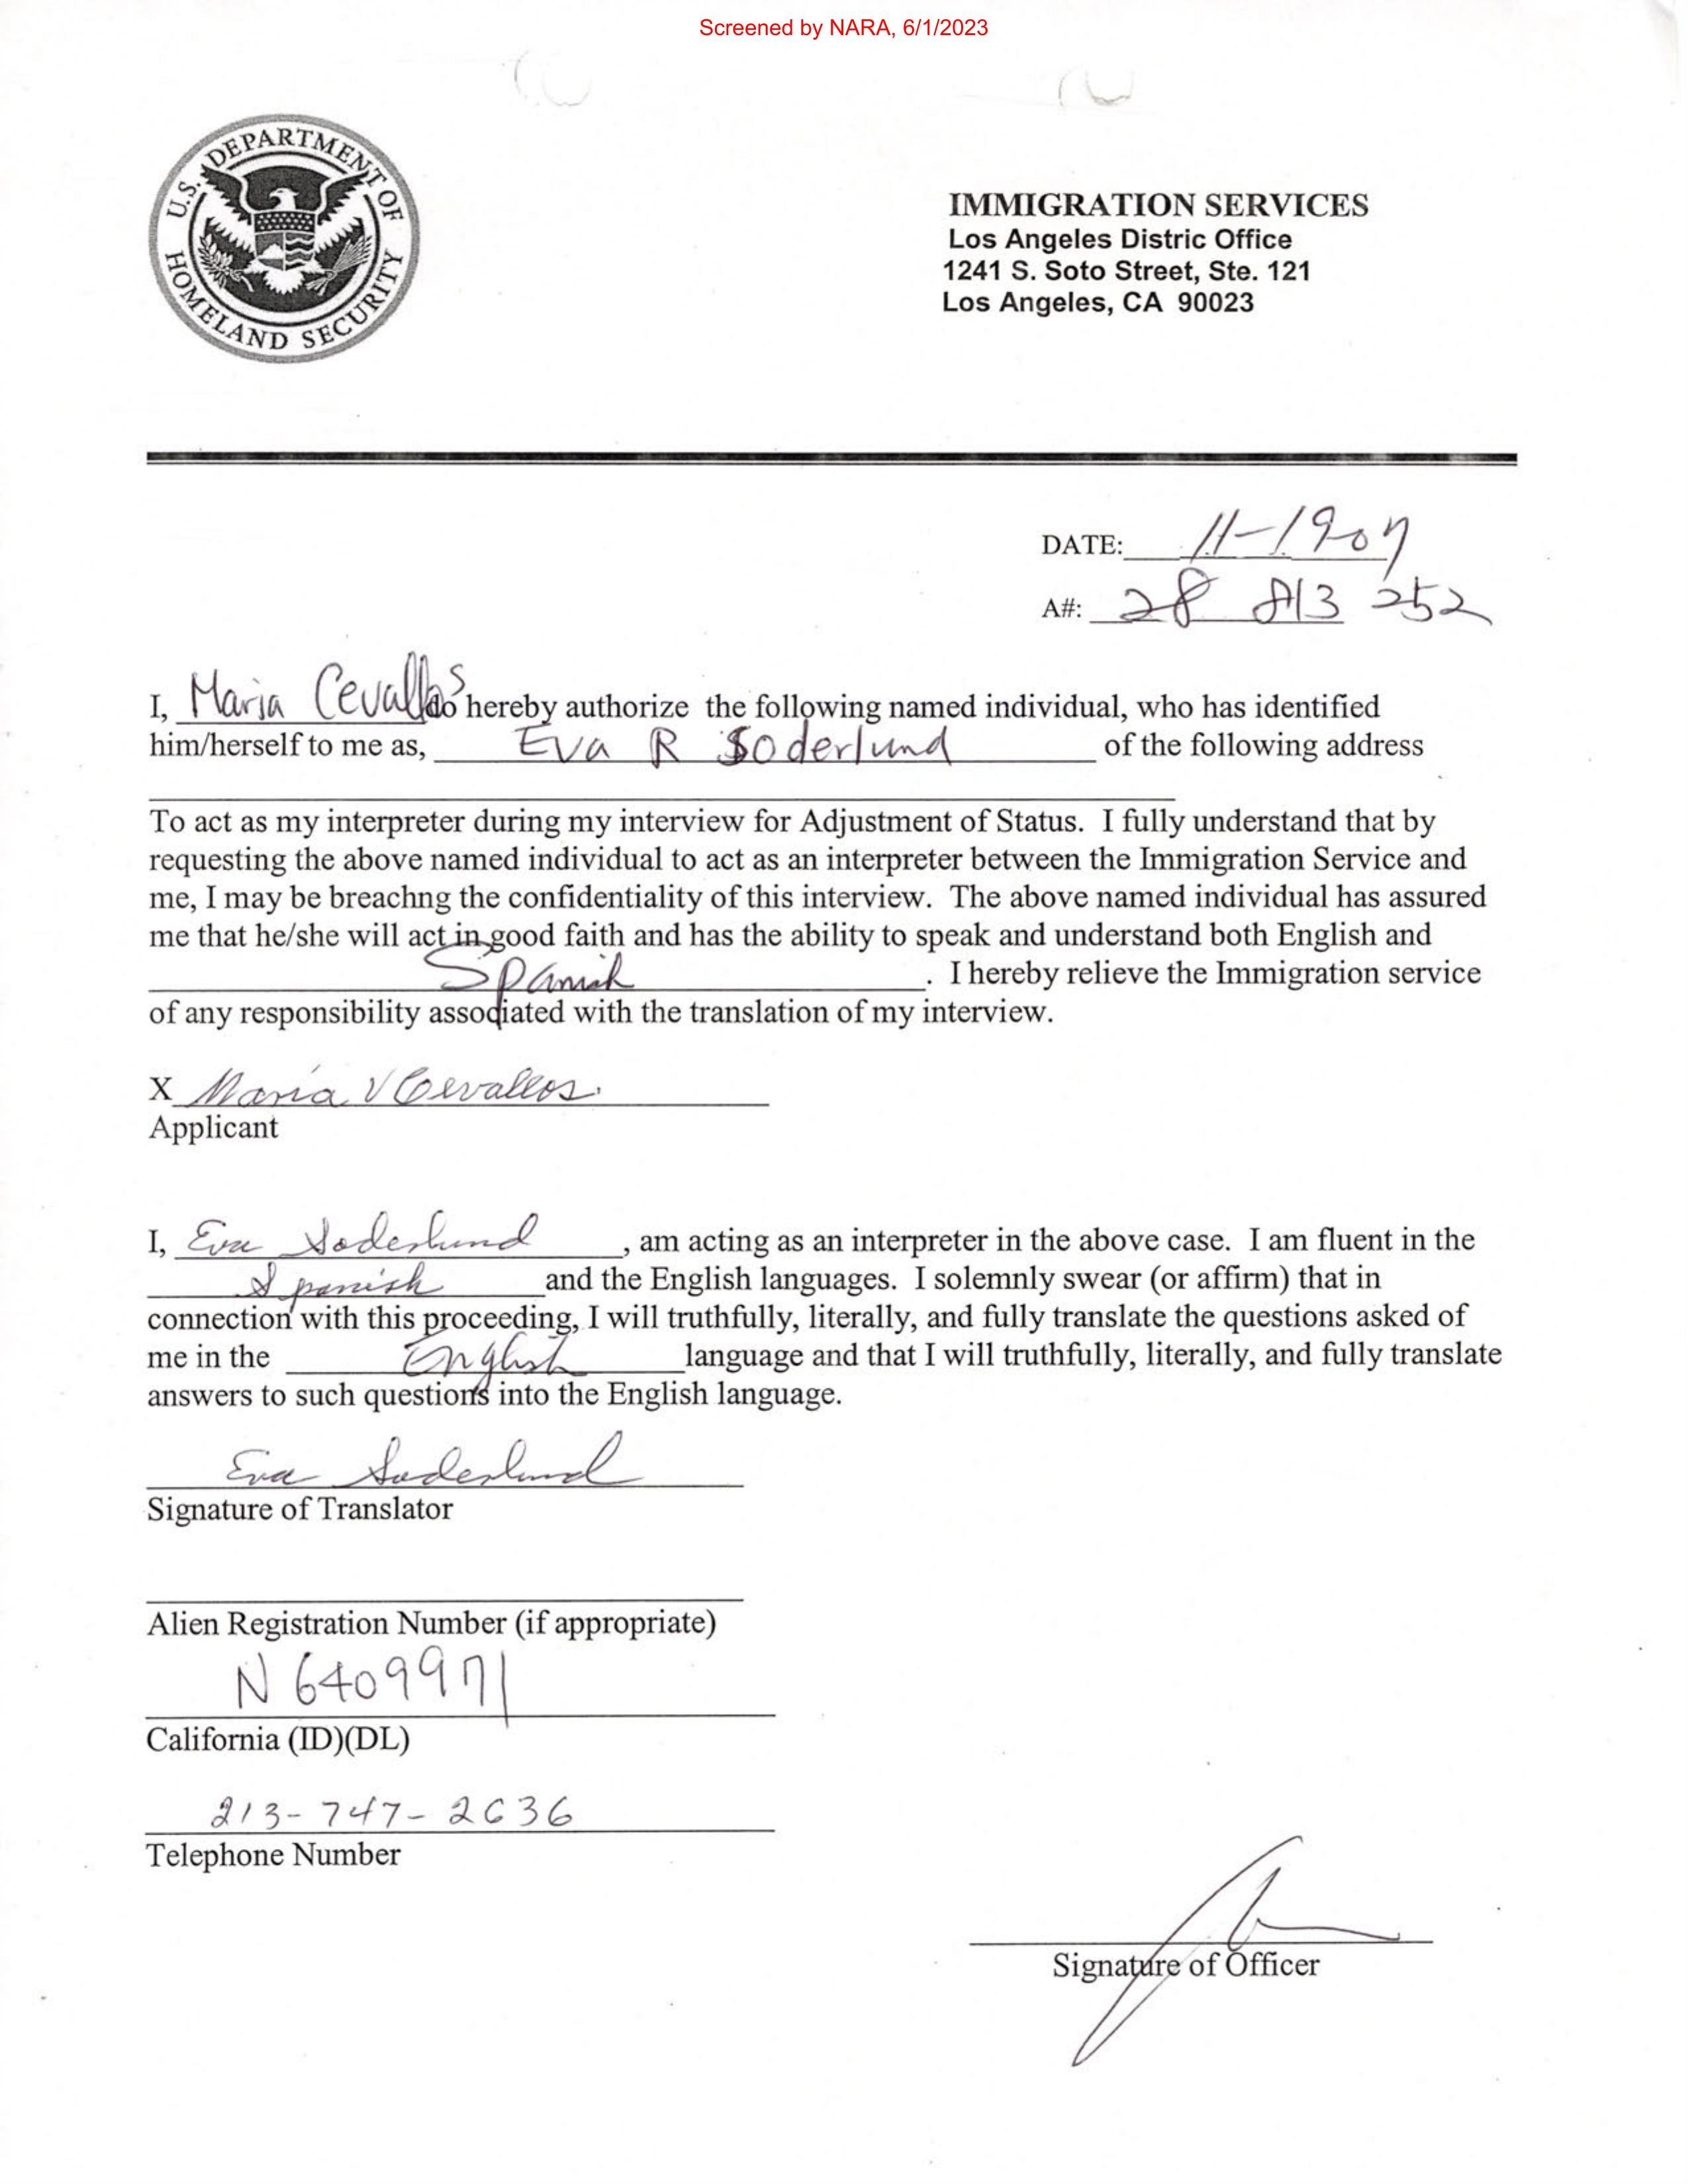 Screened by NARA, 6/1/2023
U.S. DEPARTMENT OF HOMELAND SECURITY
IMMIGRATION SERVICES
Los Angeles Distric Office
1241 S. Soto Street, Ste. 121
Los Angeles, CA 90023
DATE: 11-1907
A#: 28 813 252
I, Maria Cevallos do hereby authorize the following named individual, who has identified
him/herself to me as, Eva R Soderlund of the following address
To act as my interpreter during my interview for Adjustment of Status. I fully understand that by
requesting the above named individual to act as an interpreter between the Immigration Service and
me, I may be breachng the confidentiality of this interview. The above named individual has assured
me that he/she will act in good faith and has the ability to speak and understand both English and
Spanish. I hereby relieve the Immigration service
of any responsibility associated with the translation of my interview.
X Maria V Cevallos.
Applicant
I, Eva Soderlund, am acting as an interpreter in the above case. I am fluent in the
Spanish and the English languages. I solemnly swear (or affirm) that in
connection with this proceeding, I will truthfully, literally, and fully translate the questions asked of
me in the English language and that I will truthfully, literally, and fully translate
answers to such questions into the English language.
Eva Soderlund
Signature of Translator
Alien Registration Number (if appropriate)
N6409971
California (ID)(DL)
213-747-2636
Telephone Number
Signature of Officer